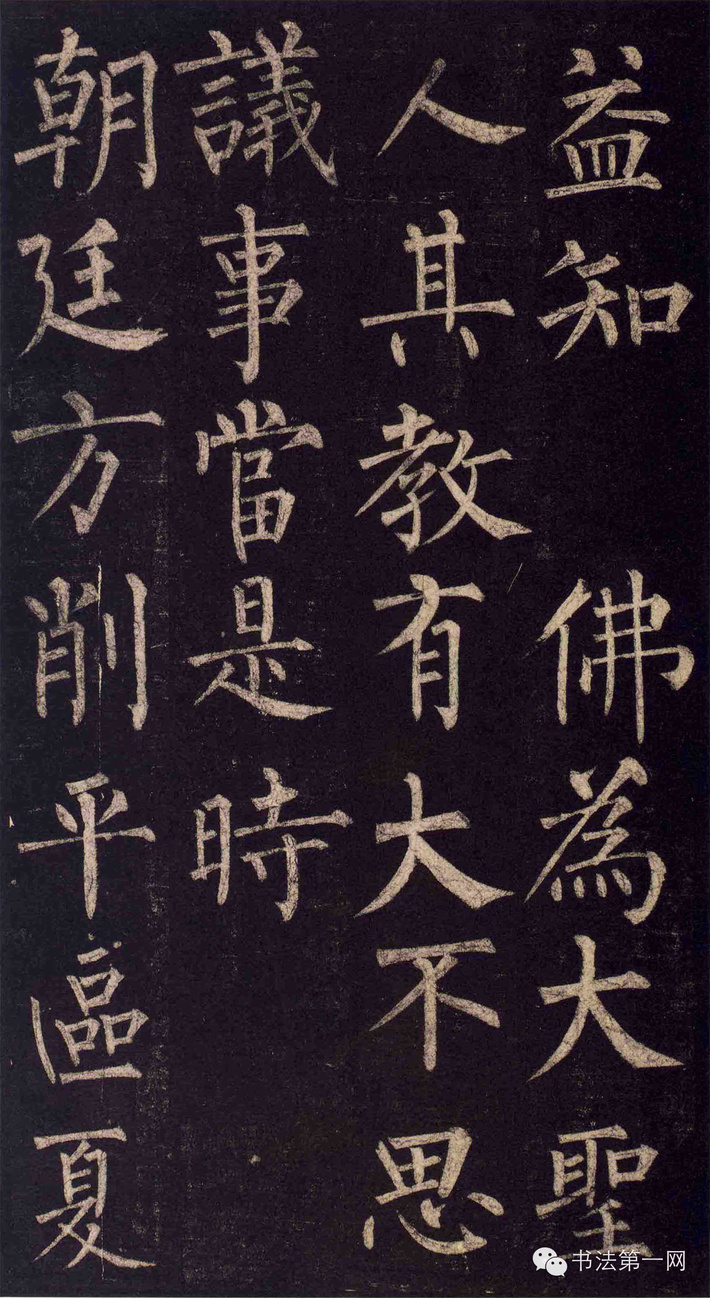 益知　佛為大聖
人其教有大不思
議事當是時
朝廷方削平區夏
书法第一网